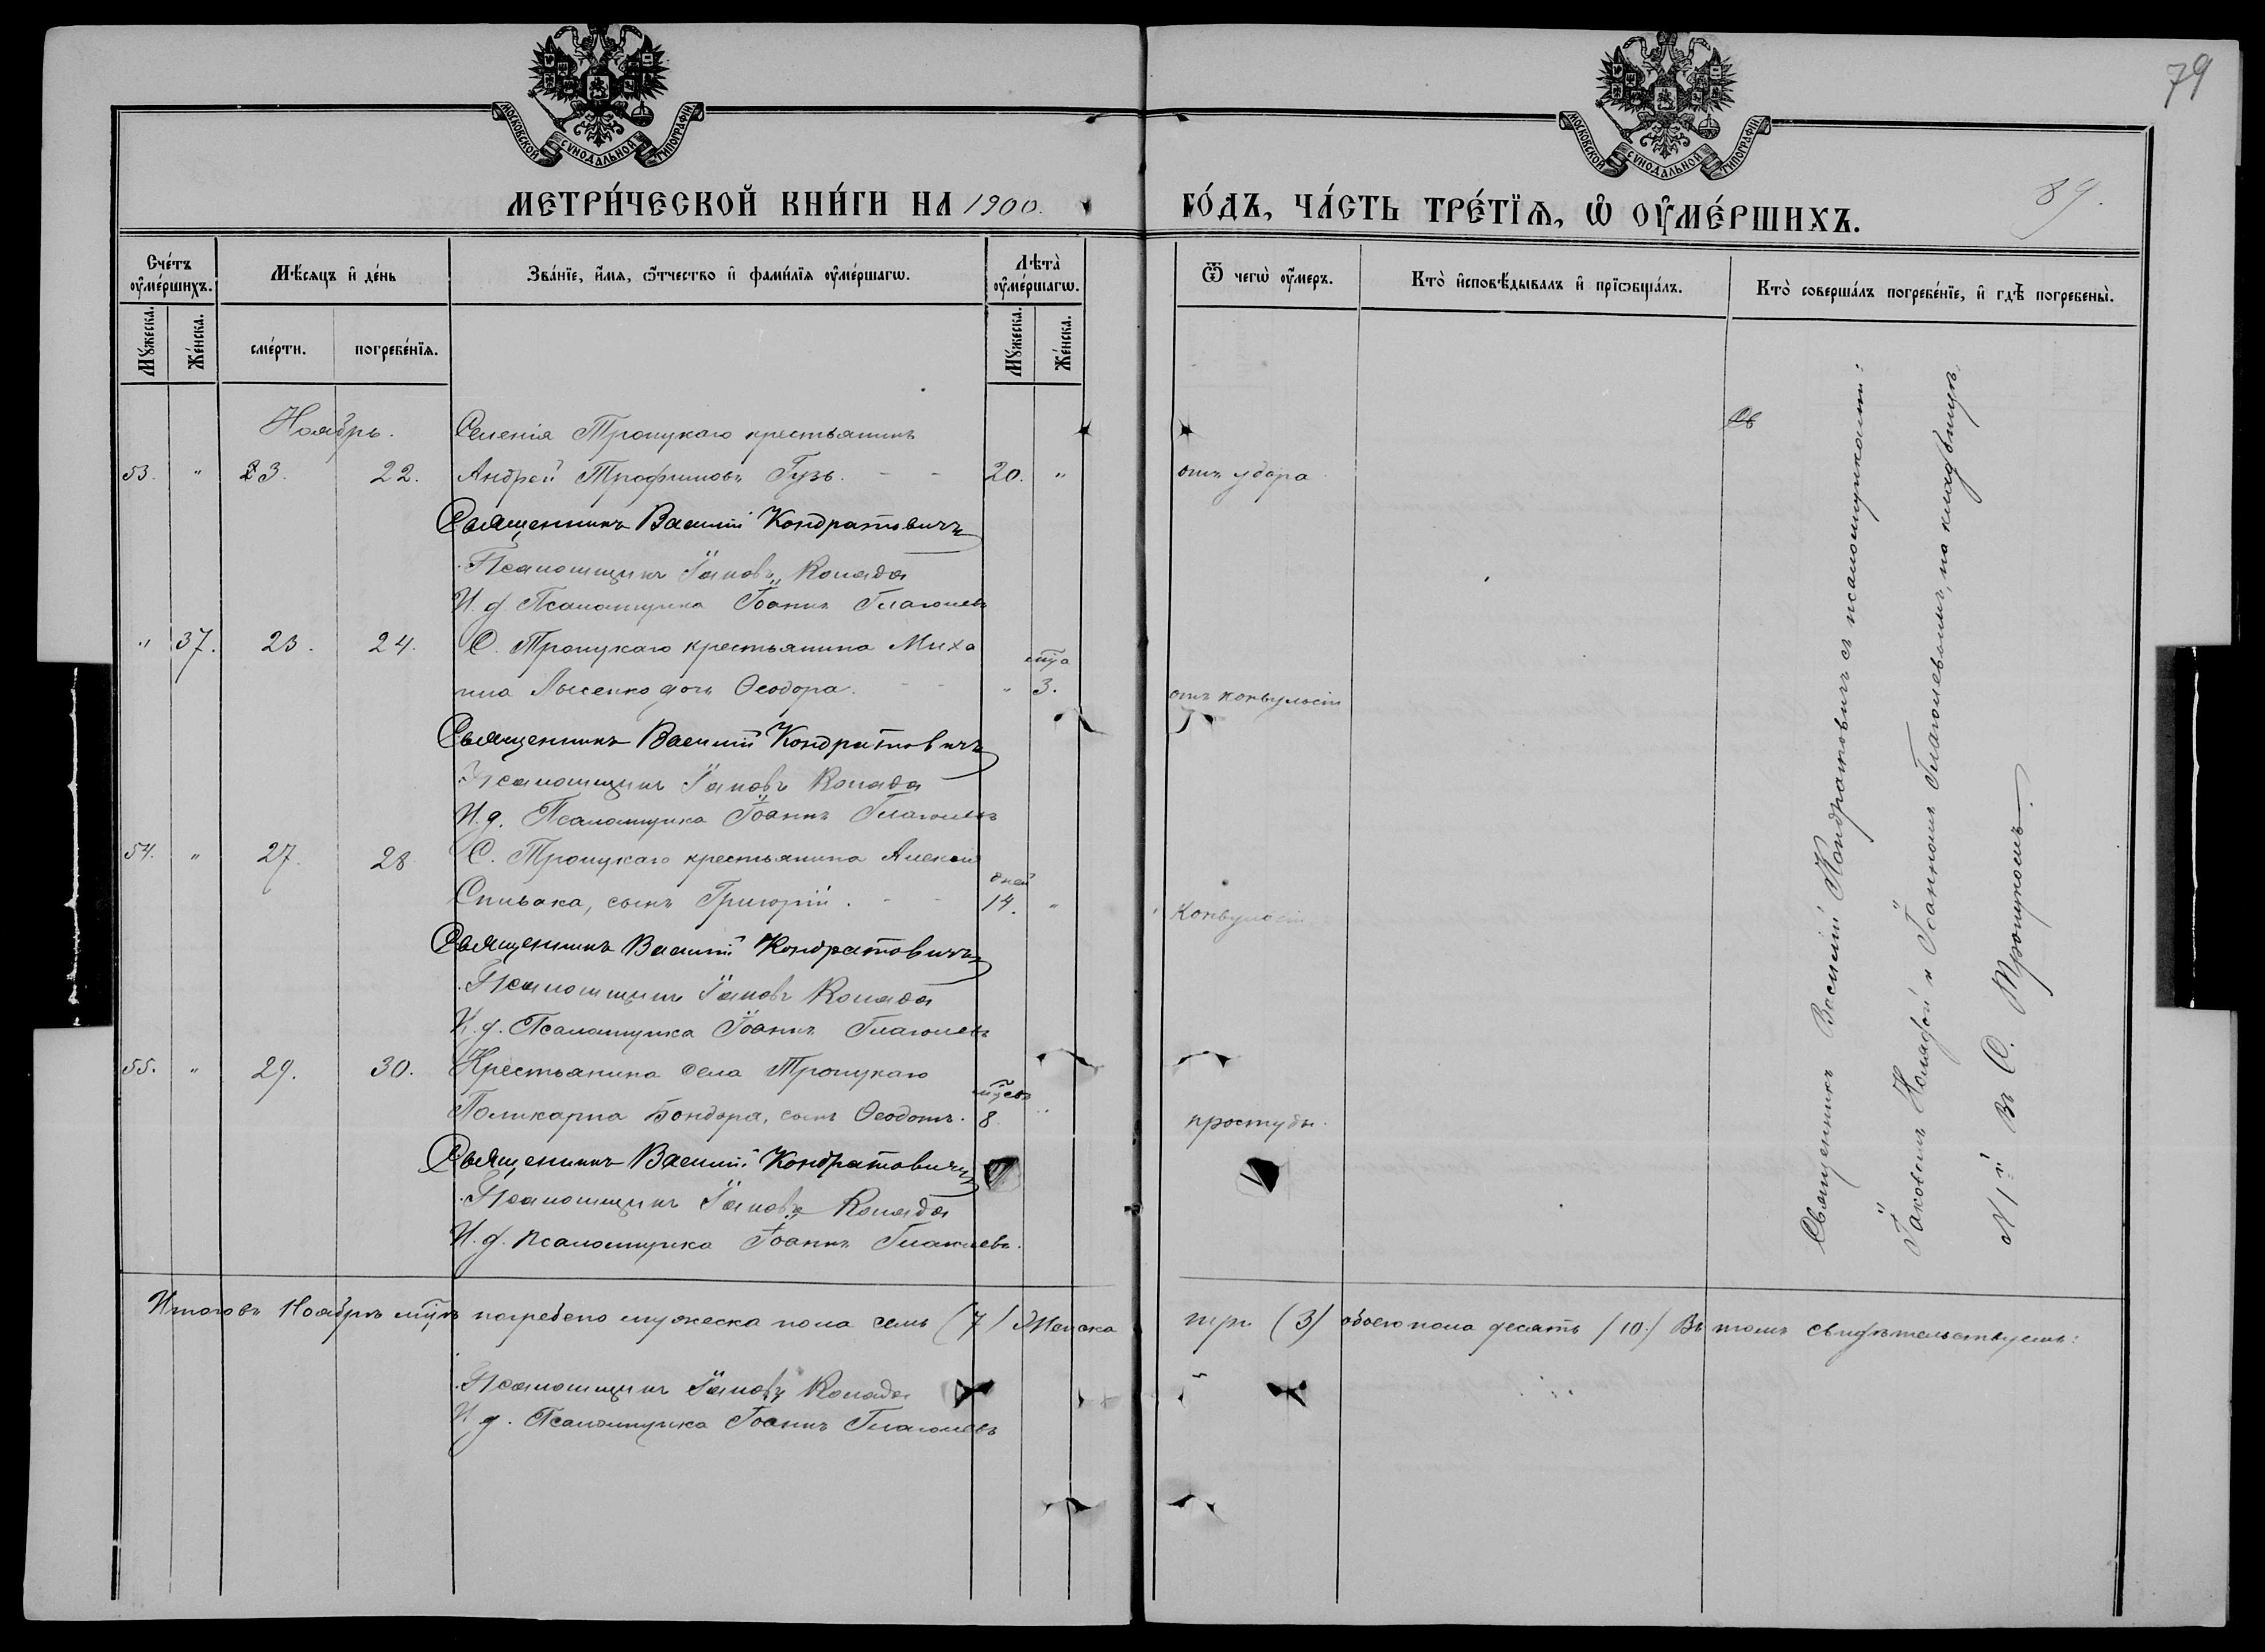 МОСКОВСКОЙ СѴНОДАЛЬНОЙ ТИПОГРАФІИ
МОСКОВСКОЙ СѴНОДАЛЬНОЙ ТИПОГРАФІИ
79
МЕТРИ́ЧЕСКОЙ КНИ́ГИ НА 1900. ГО́ДЪ, ЧА́СТЬ ТРЕ́ТЇѦ, Ѡ҆ ОУ҆МЕ́РШИХЪ.
89.
Сче́тъ оу҆ме́ршихъ.
Мѣ́сяцъ и҆ де́нь
Зва́нїе, и҆́мя, ѻ҆́тчество и҆ фами́лїя оу҆ме́ршагѡ.
Лѣта̀ оу҆ме́ршагѡ.
Ѿ чегѡ̀ оу҆́меръ.
Кто̀ и҆сповѣ́дывалъ и҆ прїѡбща́лъ.
Кто̀ соверша́лъ погребе́нїе, и҆ гдѣ̀ погребены̀.
Мꙋ́жеска. Же́нска. сме́рти. погребе́нїя. Мꙋ́жеска. Же́нска.
Ноябрь. Селенія Троицкаго крестьянинъ
Св
53. " 23. 22. Андрей Трофимовъ Гузь. - - 20. " отъ удара
Священникъ Василій Кондратовичъ
Псаломщикъ Іаковъ Коляда
И. д. Псаломщика Іоаннъ Глаголевъ
" 37. 23. 24. С. Троицкаго крестьянина Миха
мца
ила Лысенко дочь Ѳеодора. - - " 3. отъ конвульсіи
Священникъ Василій Кондратовичъ
Псаломщикъ Іаковъ Коляда
И. д. Псаломщика Іоаннъ Глаголевъ
54. " 27. 28 С. Троицкаго крестьянина Алексія
дней
Спивака, сынъ Григорій. - - 14. " Конвульсіи
Священникъ Василій Кондратовичъ
Псаломщикъ Іаковъ Коляда
И. д. Псаломщика Іоаннъ Глаголевъ
55. " 29. 30. Крестьянина села Троицкаго
мцевъ
Поликарпа Бондаря, сынъ Ѳеодотъ. 8 " простуды.
Священникъ Василій Кондратовичъ
Псаломщикъ Іаковъ Коляда
И. д. псаломщика Іоаннъ Глаголевъ.
Священникъ Василій Кондратовичъ съ псаломщиками:
Іаковомъ Колядой и Іоанномъ Глаголевымъ, на кладбищѣ
N 1й въ С. Троицкомъ.
Итого въ Ноябрѣ мцѣ погребено мужеска пола семь (7) Женска три (3) обоего пола десять /10/ Въ томъ свидѣтельствуемъ:
Псаломщикъ Іаковъ Коляда
И д. Псаломщика Іоаннъ Глаголевъ